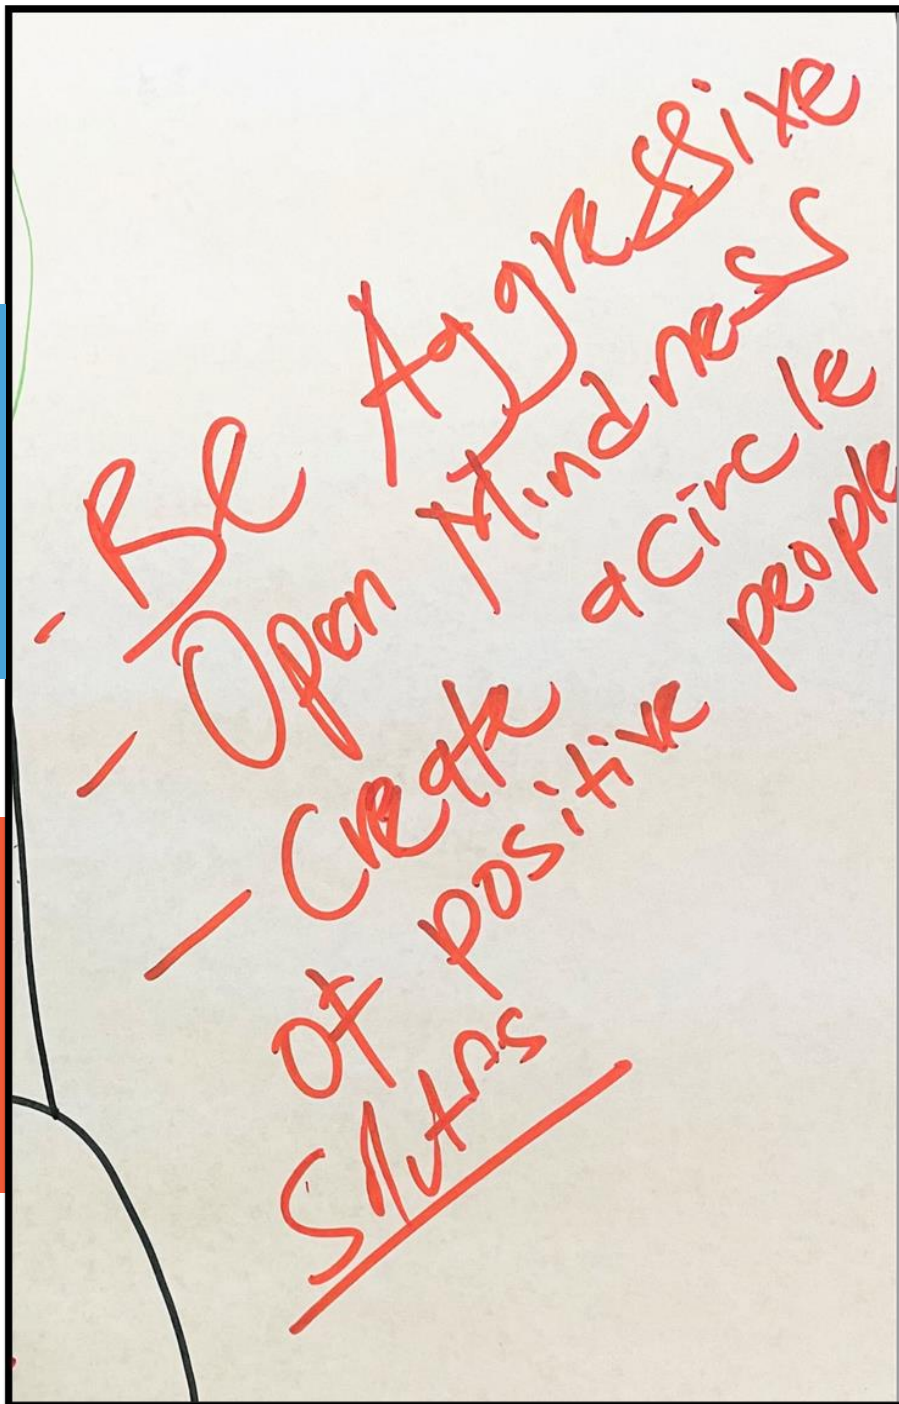 - Be Aggressive
- Open Mindness
- Create a circle
of positive people